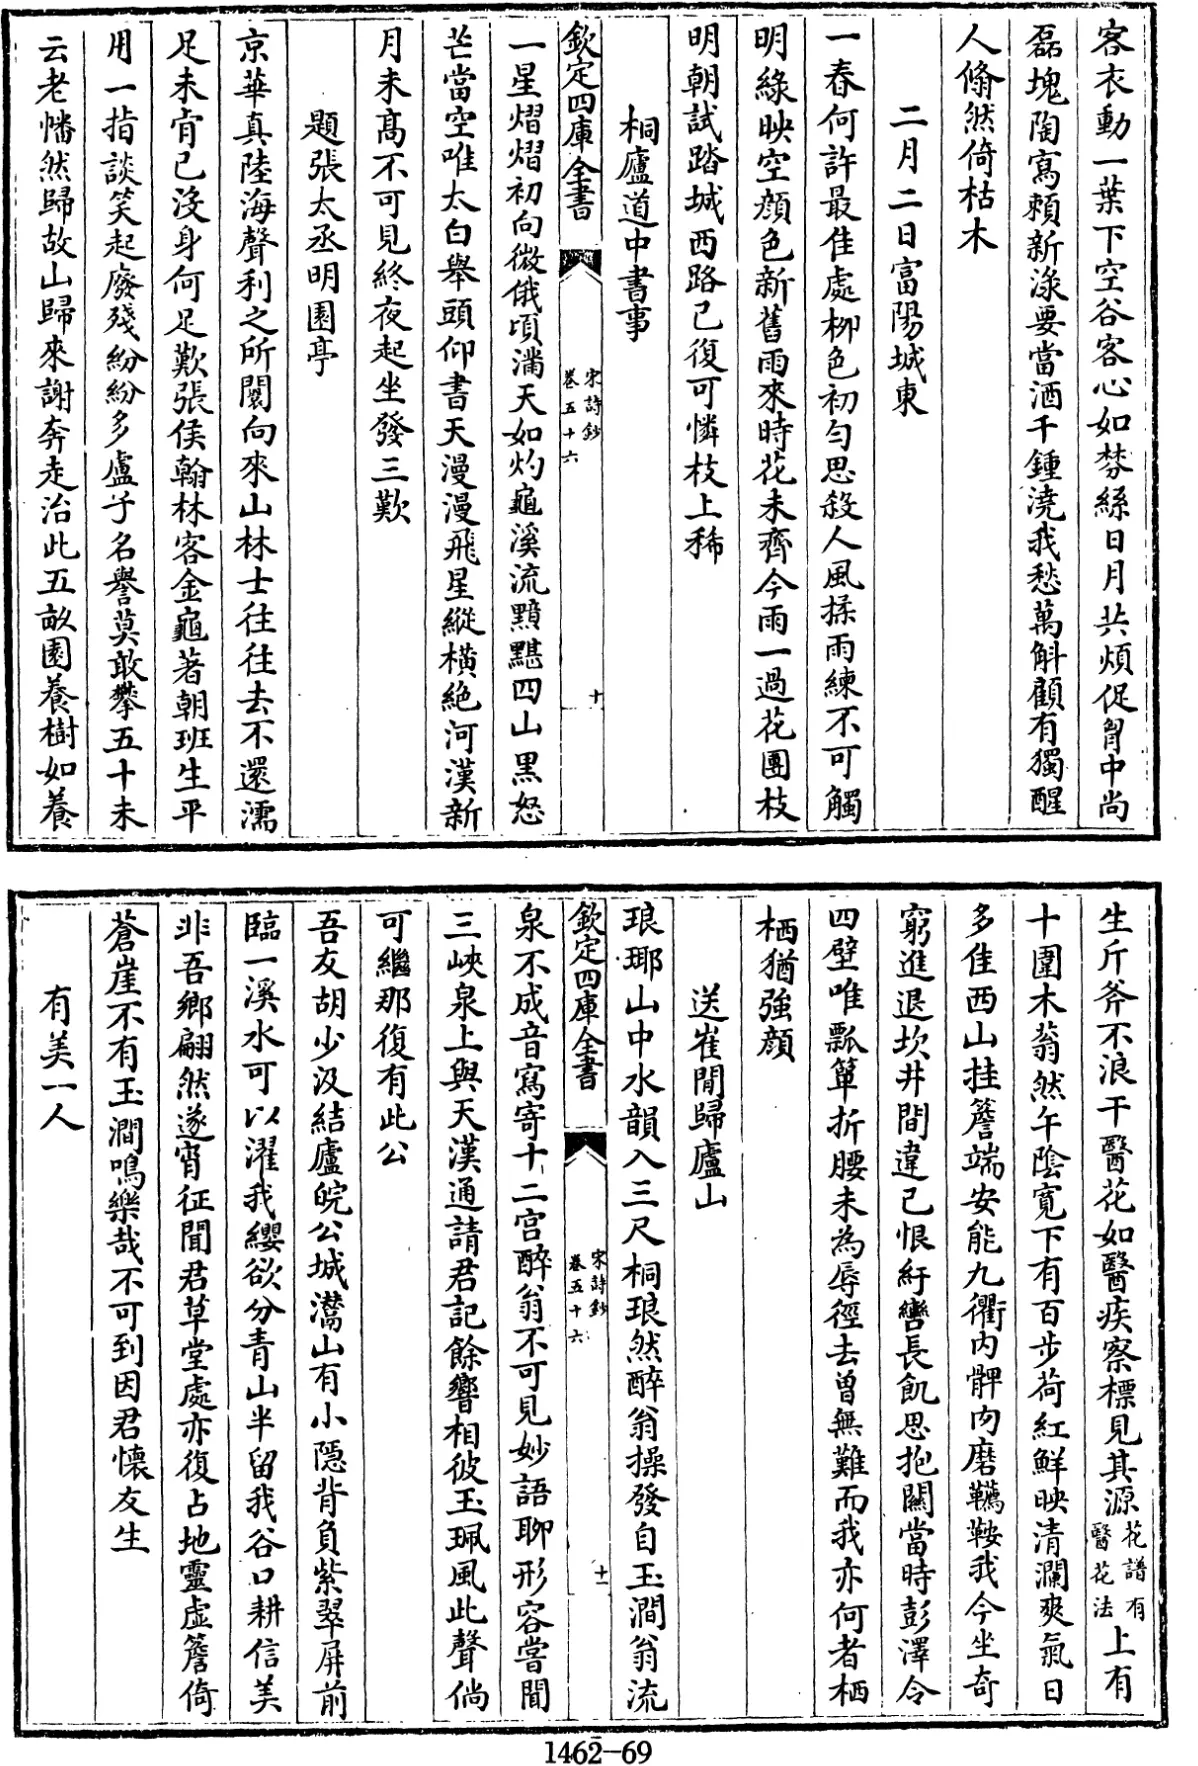 客衣動一葉下空谷客心如棼絲日月共煩促胷中尚
磊塊陶寫頼新淥要當酒千鍾澆我愁萬斛顧有獨醒
人翛然倚枯木
二月二日富陽城東
一春何許最佳處栁色初勻思殺人風揉雨練不可觸
明綠映空顔色新舊雨來時花未齊今雨一過花團枝
明朝試踏城西路已復可憐枝上稀
桐廬道中書事
欽定四庫全書
宋詩鈔
卷五十六
十
一星熠熠初向微俄頃滿天如灼龜溪流黯黮四山黑怒
芒當空唯太白舉頭仰書天漫漫飛星縱橫絶河漢新
月未髙不可見終夜起坐發三歎
題張太丞明園亭
京華真陸海聲利之所闤向來山林士往往去不還濡
足未肯已沒身何足歎張侯翰林客金龜著朝班生平
用一指談笑起廢殘紛紛多盧子名譽莫敢攀五十未
云老幡然歸故山歸來謝奔走治此五畝園養樹如養
生斤斧不浪干醫花如醫疾察標見其源花譜有醫花法上有
十圍木蓊然午隂寛下有百步荷紅鮮映清瀾爽氣日
多佳西山挂簷端安能九衢内髀肉磨韉鞍我今坐奇
窮進退坎井間違己恨紆轡長飢思抱關當時彭澤令
四壁唯瓢簞折腰未為辱徑去曽無難而我亦何者栖
栖猶強顔
送崔閒歸廬山
琅瑘山中水韻入三尺桐琅然醉翁操發自玉澗翁流
欽定四庫全書
宋詩鈔
卷五十六
十一
泉不成音寫寄十二宫醉翁不可見妙語聊形容嘗聞
三峽泉上與天漢通請君記餘響相彼玉珮風此聲倘
可繼那復有此公
吾友胡少汲結廬皖公城灊山有小隠背負紫翠屏前
臨一溪水可以濯我纓欲分青山半留我谷口耕信美
非吾鄉翩然遂宵征聞君草堂處亦復占地靈虛簷倚
蒼崖不有玉澗鳴樂哉不可到因君懐友生
有美一人
1462-69